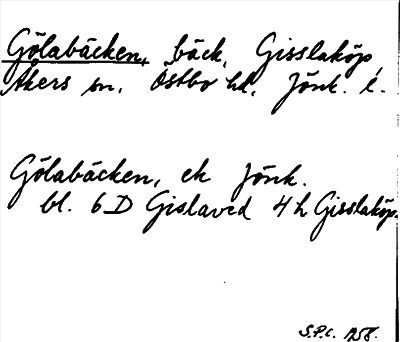 Gölabäcken, bäck, Gisslaköp,
Åkers sn. Östbo hd. Jönk. l.
Gölabäcken, ek Jönk.
bl. 6D Gislaved 4h Gisslaköp.
S.P.C. 1958.